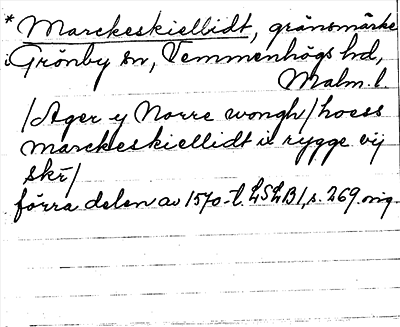 * Marckeskiellidt, gränsmärke
i Grönby sn, Vemmenhögs hd,
Malm. l.
/Ager y Norre wongh/hoess
Marckeskiellidt ix rygge vij
skr/
förra delen av 1570-t. LSLB1, s. 269. orig.